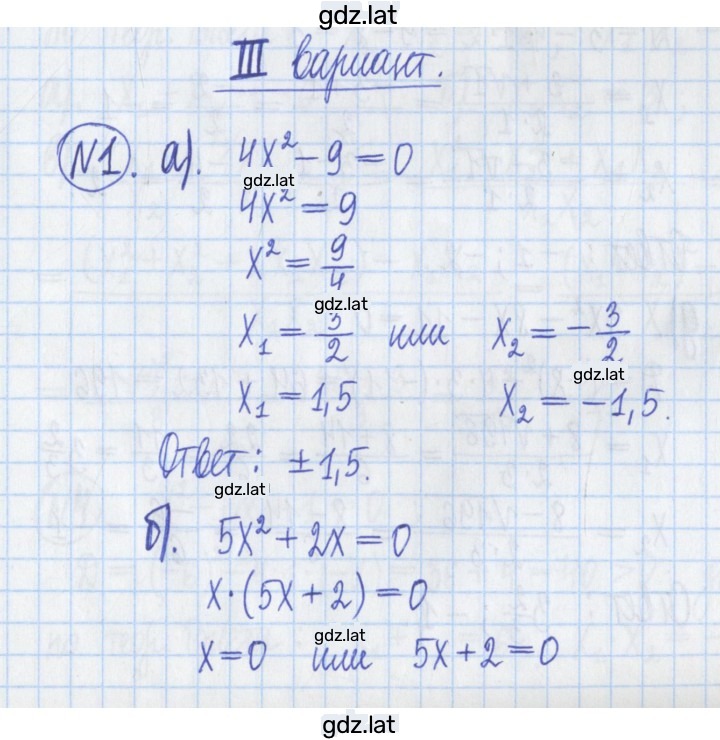 gdz.lat
III вариант.
№1. а). 4x² - 9 = 0
gdz.lat
4x² = 9
x² = 9/4
gdz.lat
x₁ = 3/2 или x₂ = -3/2
gdz.lat
x₁ = 1,5 x₂ = -1,5.
Ответ: ±1,5.
gdz.lat
б). 5x² + 2x = 0
x·(5x + 2) = 0
gdz.lat
x = 0 или 5x + 2 = 0
gdz.lat